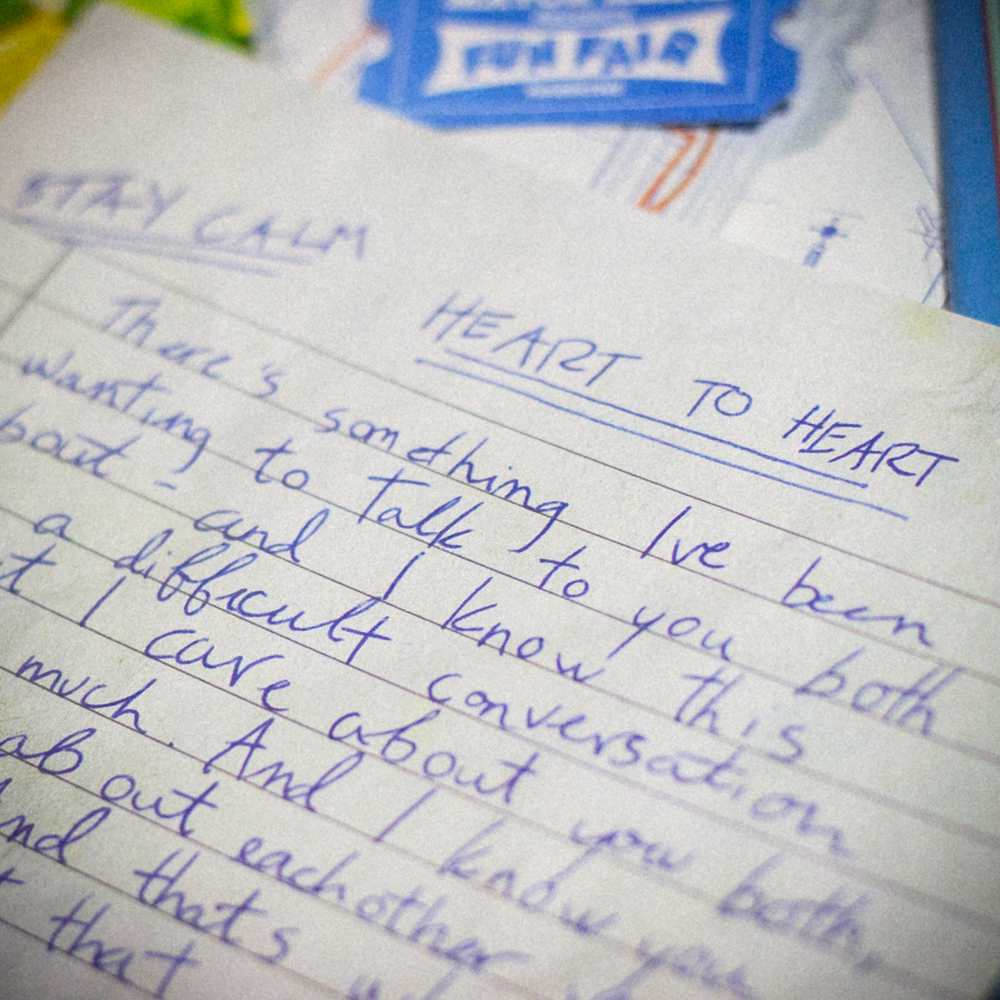 FUN FAIR
STAY CALM
HEART TO HEART
There's something I've been
wanting to talk to you both
bout - and I know this
a difficult conversation
t I care about you both,
much. And I know you
about eachother
nd that's
that